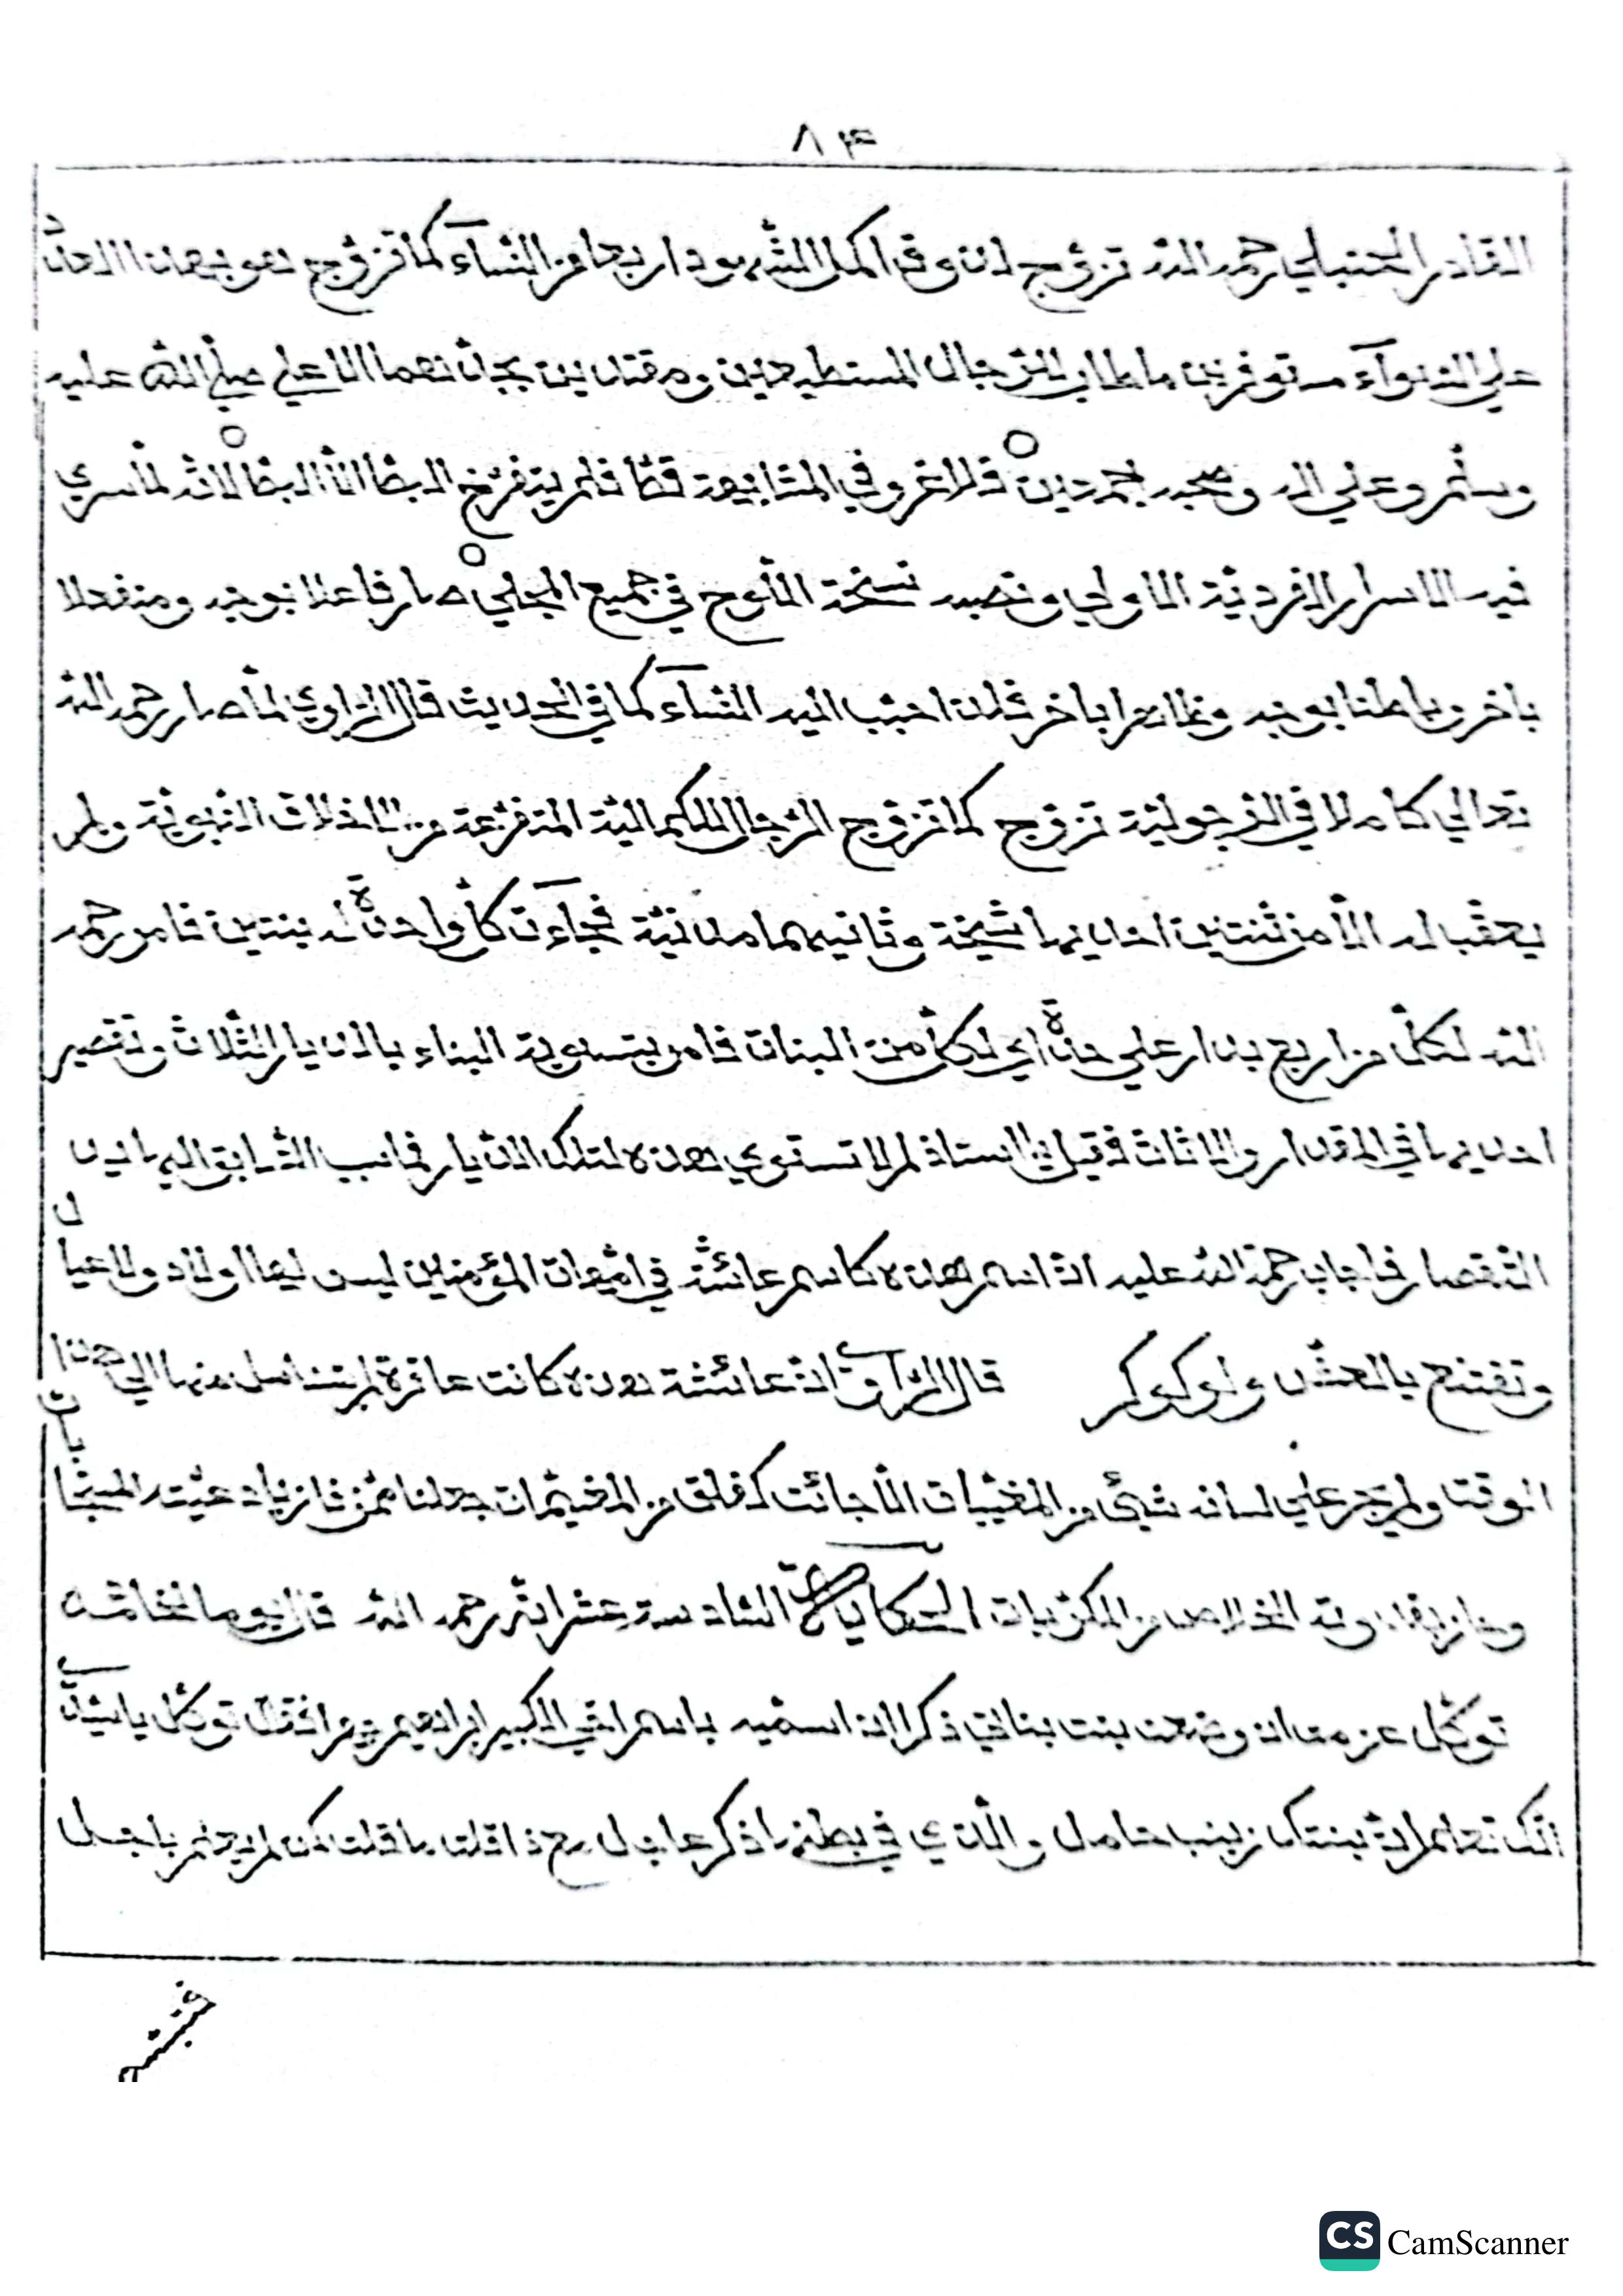 ٨٤
القادر الحنبلي رحمه الله تزوج لذوق اكمل الشهود اربعا من النساء كما تزوج هو بهذا العدد
علي السواء موفرين ما طاب للرجال المستطيعين ومقتديين بجدهما الاعلي صلي الله عليه
وسلم وعلي اله وصحبه اجمعين فلا غرو في المتابعة قط فلم يتفرخ البط الا البط لانه لما سري
فيه الاسرار الفردية الاولي ونصبه نسخة اللوح في جميع المجلي صار فاعلا بوجه ومنفعلا
باخر وباطنا بوجه وظاهرا باخر فلذا حبب اليه النساء كما في الحديث قال الراوي لما صار رحمه الله
تعالي كاملا في الفرجولية تزوج كما تزوج الرجال الكمالية المتفرعة من الاخلاق النبوية ولم
يعقب له الا من ثنتين احديهما شيخة وثانيهما مدنية فجاءت كل واحدة له بنتين فامر رحمه
الله لكل من اربع بدار علي حدة اي لكل من البنات فامر بتسوية البناء بالديار الثلاث وتقصير
احديها في المقدار والاثاث فقيل يا استاذ لم لا تستوي هذه لتلك الديار فما سبب السابق اليها يدل
التقصار فاجاب رحمة الله عليه ان اسم هذه كاسم عائشة في امهات المؤمنين ليس لها اولاد ولا عيال
وتقنع بالعش ولو كوكر قال الراوي ان عائشة هذه كانت عاقرة لم يتناسل منها الي هذا
الوقت ولم يجر علي لسانه شيئ من المغيبات الا جائت كفلق من المغيمات جعلنا ممن فاز بادعيته المستجابات
وحاز بقلادته الخلاص من المكربات الحكاية السادسة عشر انه رحمه الله قال يوما لخادمه
توكل عزمت ان وضعت بنت بناتي ذكرا ان اسميه باسم اخي الكبير ابراهيم مرم فقال توكل يا سيدي
انك تعلم ان بنتك زينب حامل والذي في بطنها ذكر عاب ل رح ذا قلت ما قلت لكن لم يعلم باجل